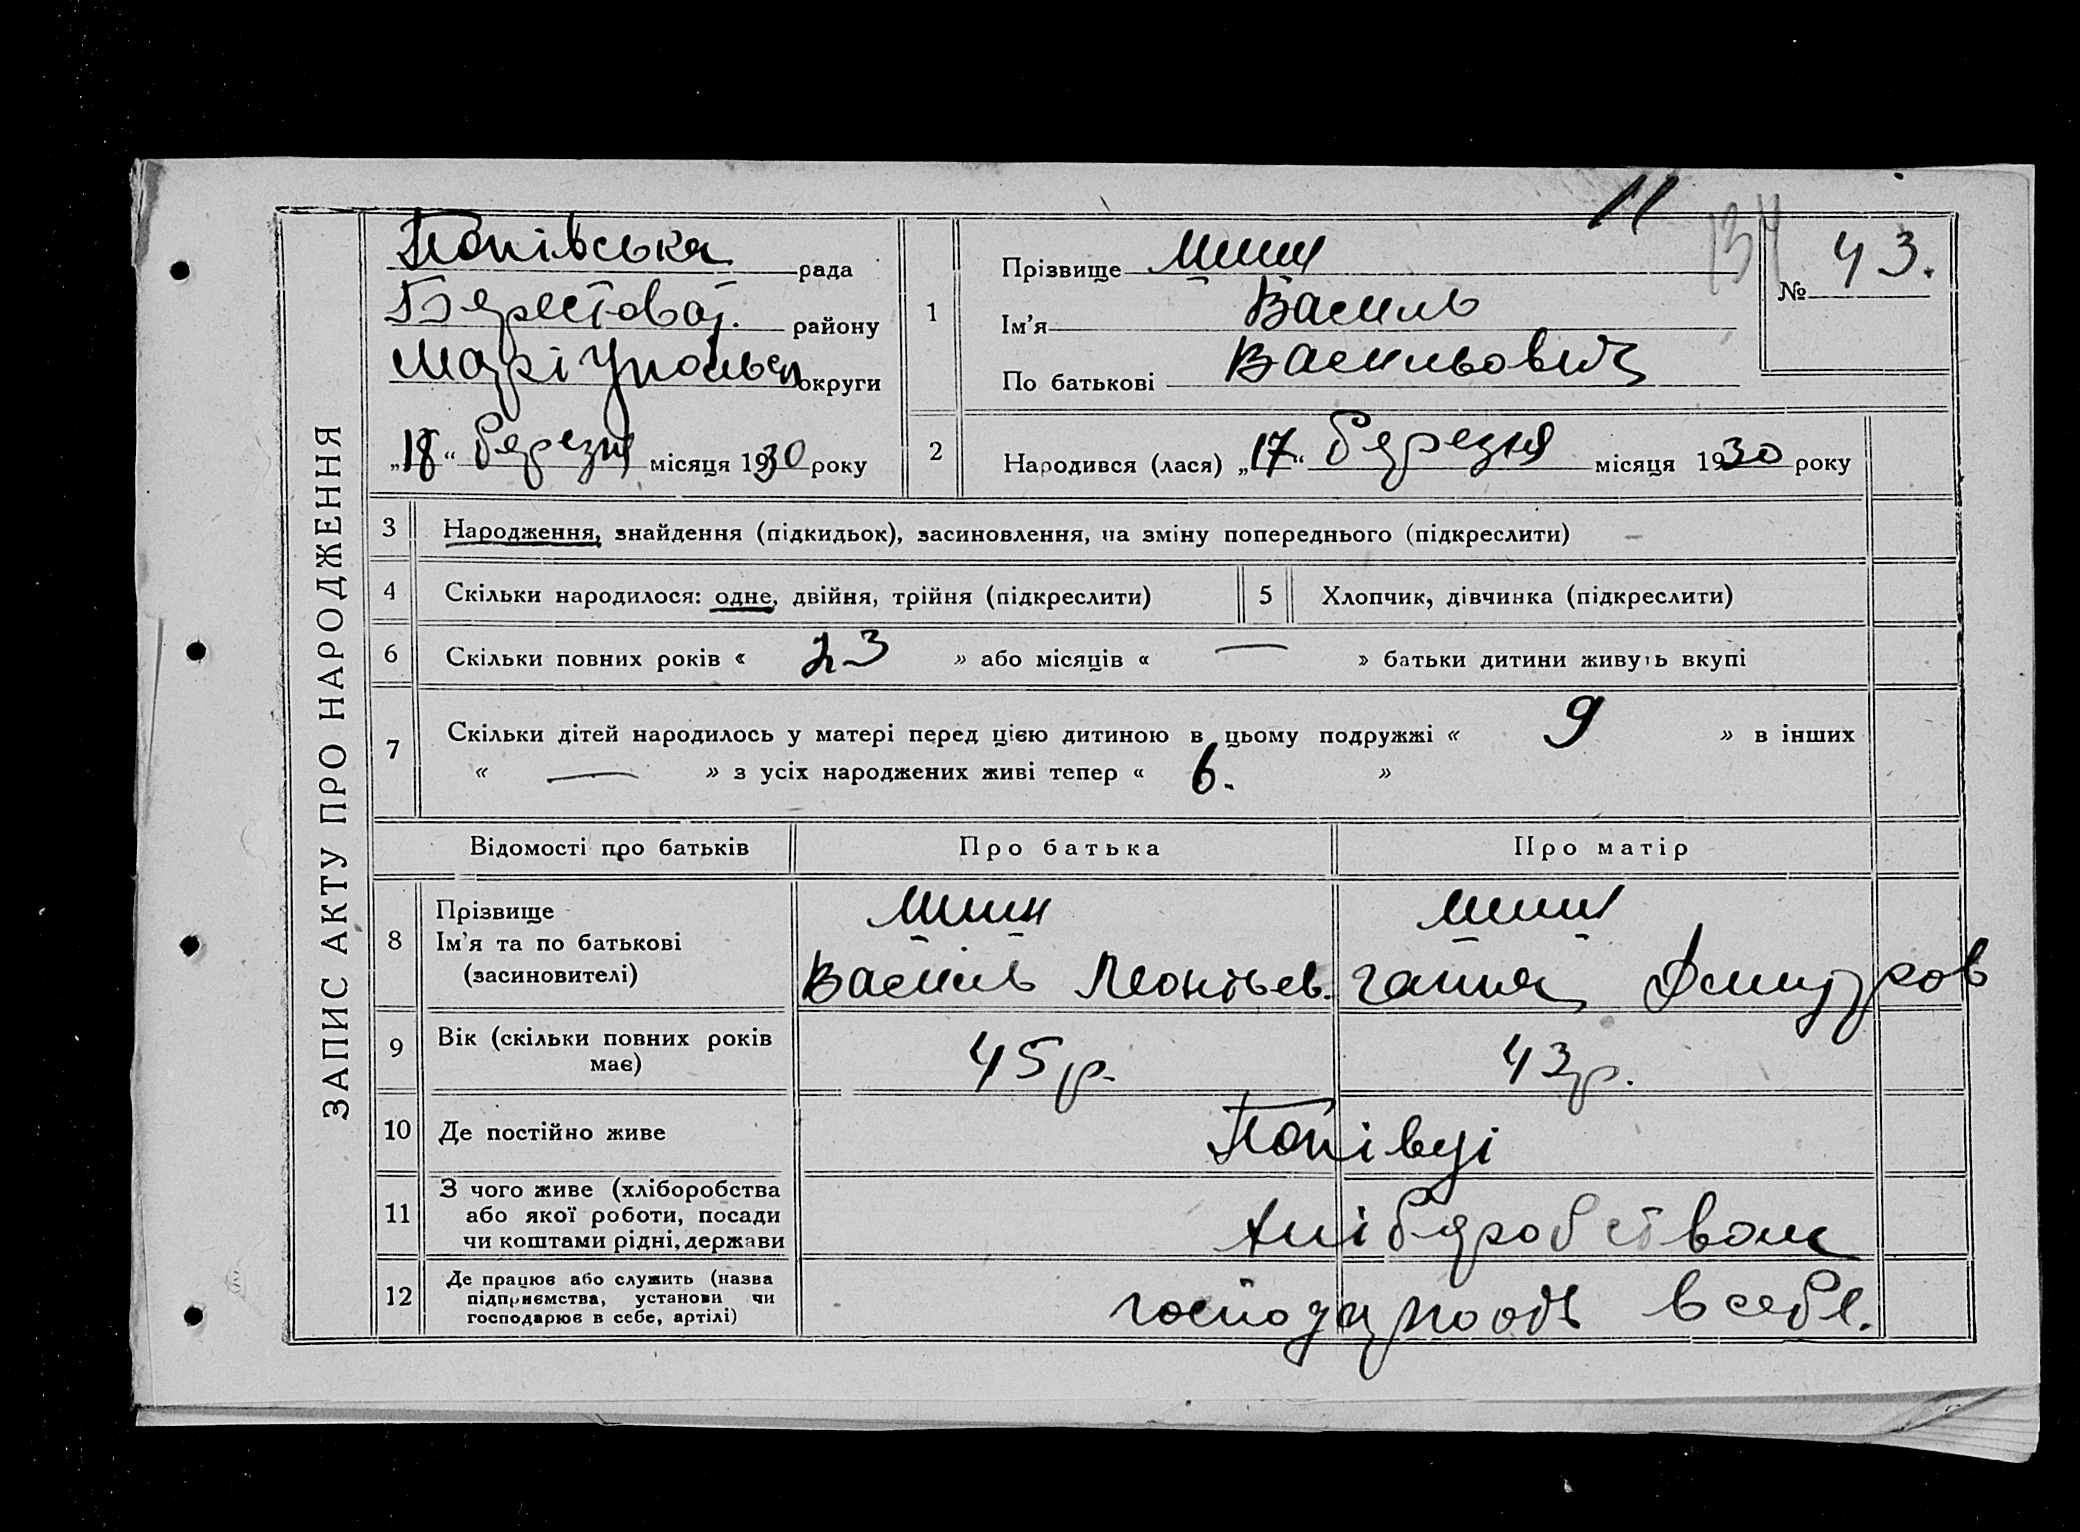 11
134
ЗАПИС АКТУ ПРО НАРОДЖЕННЯ
Попівська рада
Берестової. району
Маріупольск округи
„18“ березня місяця 1930 року
1
Прізвище Шиш
Ім'я Василь
По батькові Васильович
№ 43.
2
Народився (лася) „17“ березня місяця 1930 року
3 Народження, знайдення (підкидьок), засиновлення, на зміну попереднього (підкреслити)
4 Скільки народилося: одне, двійня, трійня (підкреслити) 5 Хлопчик, дівчинка (підкреслити)
6 Скільки повних років « 23 » або місяців « — » батьки дитини живуть вкупі
7 Скільки дітей народилось у матері перед цією дитиною в цьому подружжі « 9 » в інших
« — » з усіх народжених живі тепер « 6. »
Відомості про батьків Про батька Про матір
8 Прізвище
Ім'я та по батькові
(засиновителі)
Василь Леонтьев. Ганна Дмитров
9 Вік (скільки повних років
має)
45 р. 43 р.
10 Де постійно живе Попівці
11 З чого живе (хліборобства
або якої роботи, посади
чи коштами рідні, держави
хліборобством
12 Де працює або служить (назва
підприємства, установи чи
господарює в себе, артілі)
в себе.